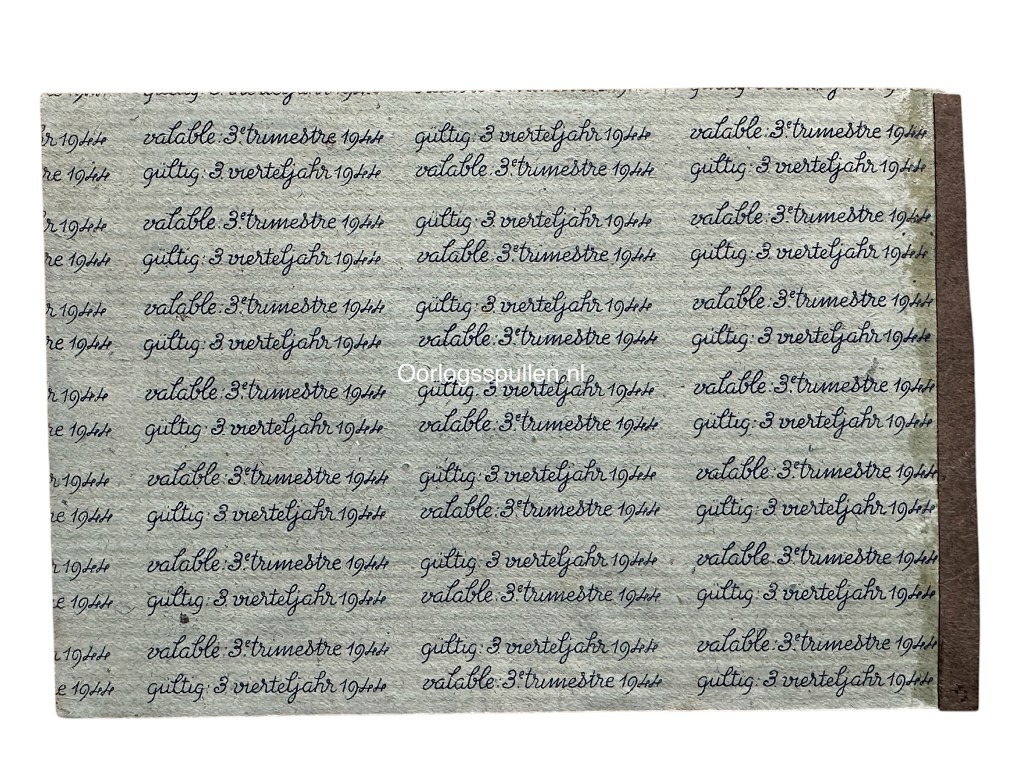 hr 1944 valable: 3e trimestre 1944 gültig: 3 vierteljahr 1944 valable: 3e trimestre 1944
re 1944 gültig: 3 vierteljahr 1944 valable: 3e trimestre 1944 gültig: 3 vierteljahr 1944
r 1944 valable: 3e trimestre 1944 gültig: 3 vierteljahr 1944 valable: 3e trimestre 1944
re 1944 gültig: 3 vierteljahr 1944 valable: 3e trimestre 1944 gültig: 3 vierteljahr 1944
r 1944 valable: 3e trimestre 1944 gültig: 3 vierteljahr 1944 valable: 3e trimestre 1944
re 1944 gültig: 3 vierteljahr 1944 valable: 3e trimestre 1944 gültig: 3 vierteljahr 1944
Oorlogsspullen.nl
r 1944 valable: 3e trimestre 1944 gültig: 3 vierteljahr 1944 valable: 3e trimestre 1944
re 1944 gültig: 3 vierteljahr 1944 valable: 3e trimestre 1944 gültig: 3 vierteljahr 1944
r 1944 valable: 3e trimestre 1944 gültig: 3 vierteljahr 1944 valable: 3e trimestre 1944
re 1944 gültig: 3 vierteljahr 1944 valable: 3e trimestre 1944 gültig: 3 vierteljahr 1944
1944 valable: 3e trimestre 1944 gültig: 3 vierteljahr 1944 valable: 3e trimestre 1944
e 1944 gültig: 3 vierteljahr 1944 valable: 3e trimestre 1944 gültig: 3 vierteljahr 1944
1944 valable: 3e trimestre 1944 gültig: 3 vierteljahr 1944 valable: 3e trimestre 1944
e 1944 gültig: 3 vierteljahr 1944 valable: 3e trimestre 1944 gültig: 3 vierteljahr 1944